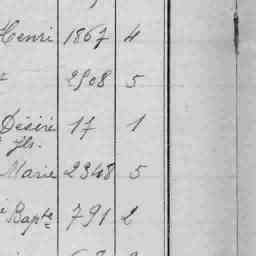 Henri 1867 4
2908 5
Désiré 17 1
fls.
Marie 2348 5
Bapte 791 2